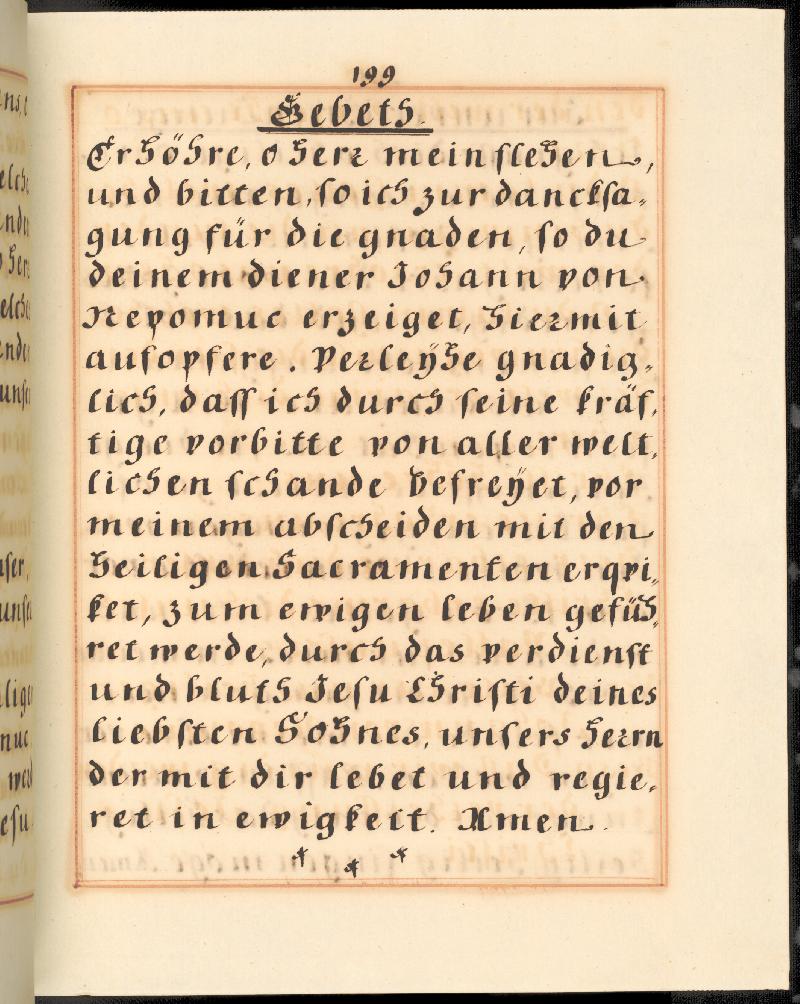 199
Gebeth.
Erhöhre, o herr mein flehen,
und bitten, so ich zur dancksa,
gung für die gnaden, so du
deinem diener Johann von
Nepomuc erzeiget, hiermit
aufopfere. Verleÿhe gnadig,
lich, dass ich durch seine kräf,
tige vorbitte von aller welt,
lichen schande befreÿet, vor
meinem abscheiden mit den
heiligen Sacramenten erqvi,
ket, zum ewigen leben gefüh,
ret werde, durch das verdienst
und bluth Jesu Christi deines
liebsten Sohnes, unsers herrn
der mit dir lebet und regie,
ret in ewigkeit. Amen.